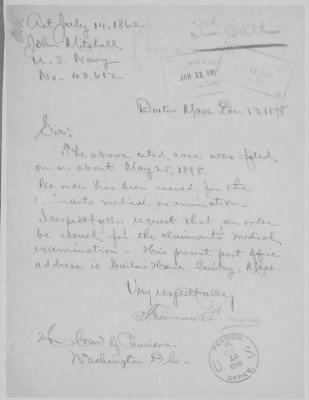 Act July 14, 1862.
John Mitchell
U. S. Navy
No. 43,612
2nd Call
JAN 11
Boston Mass Dec. 13, 1898.
Sir:
The above cited case was filed
on or about May 28, 1898.
No order has been issued for the
medical examination.
I respectfully request that an order
be issued for the claimant's medical
examination. His present post office
address is Sailors Home, Quincy, Mass.
Very respectfully
Freeman
Hon Com'r of Pensions
Washington D.C.
PENSION
OFFICE
U S